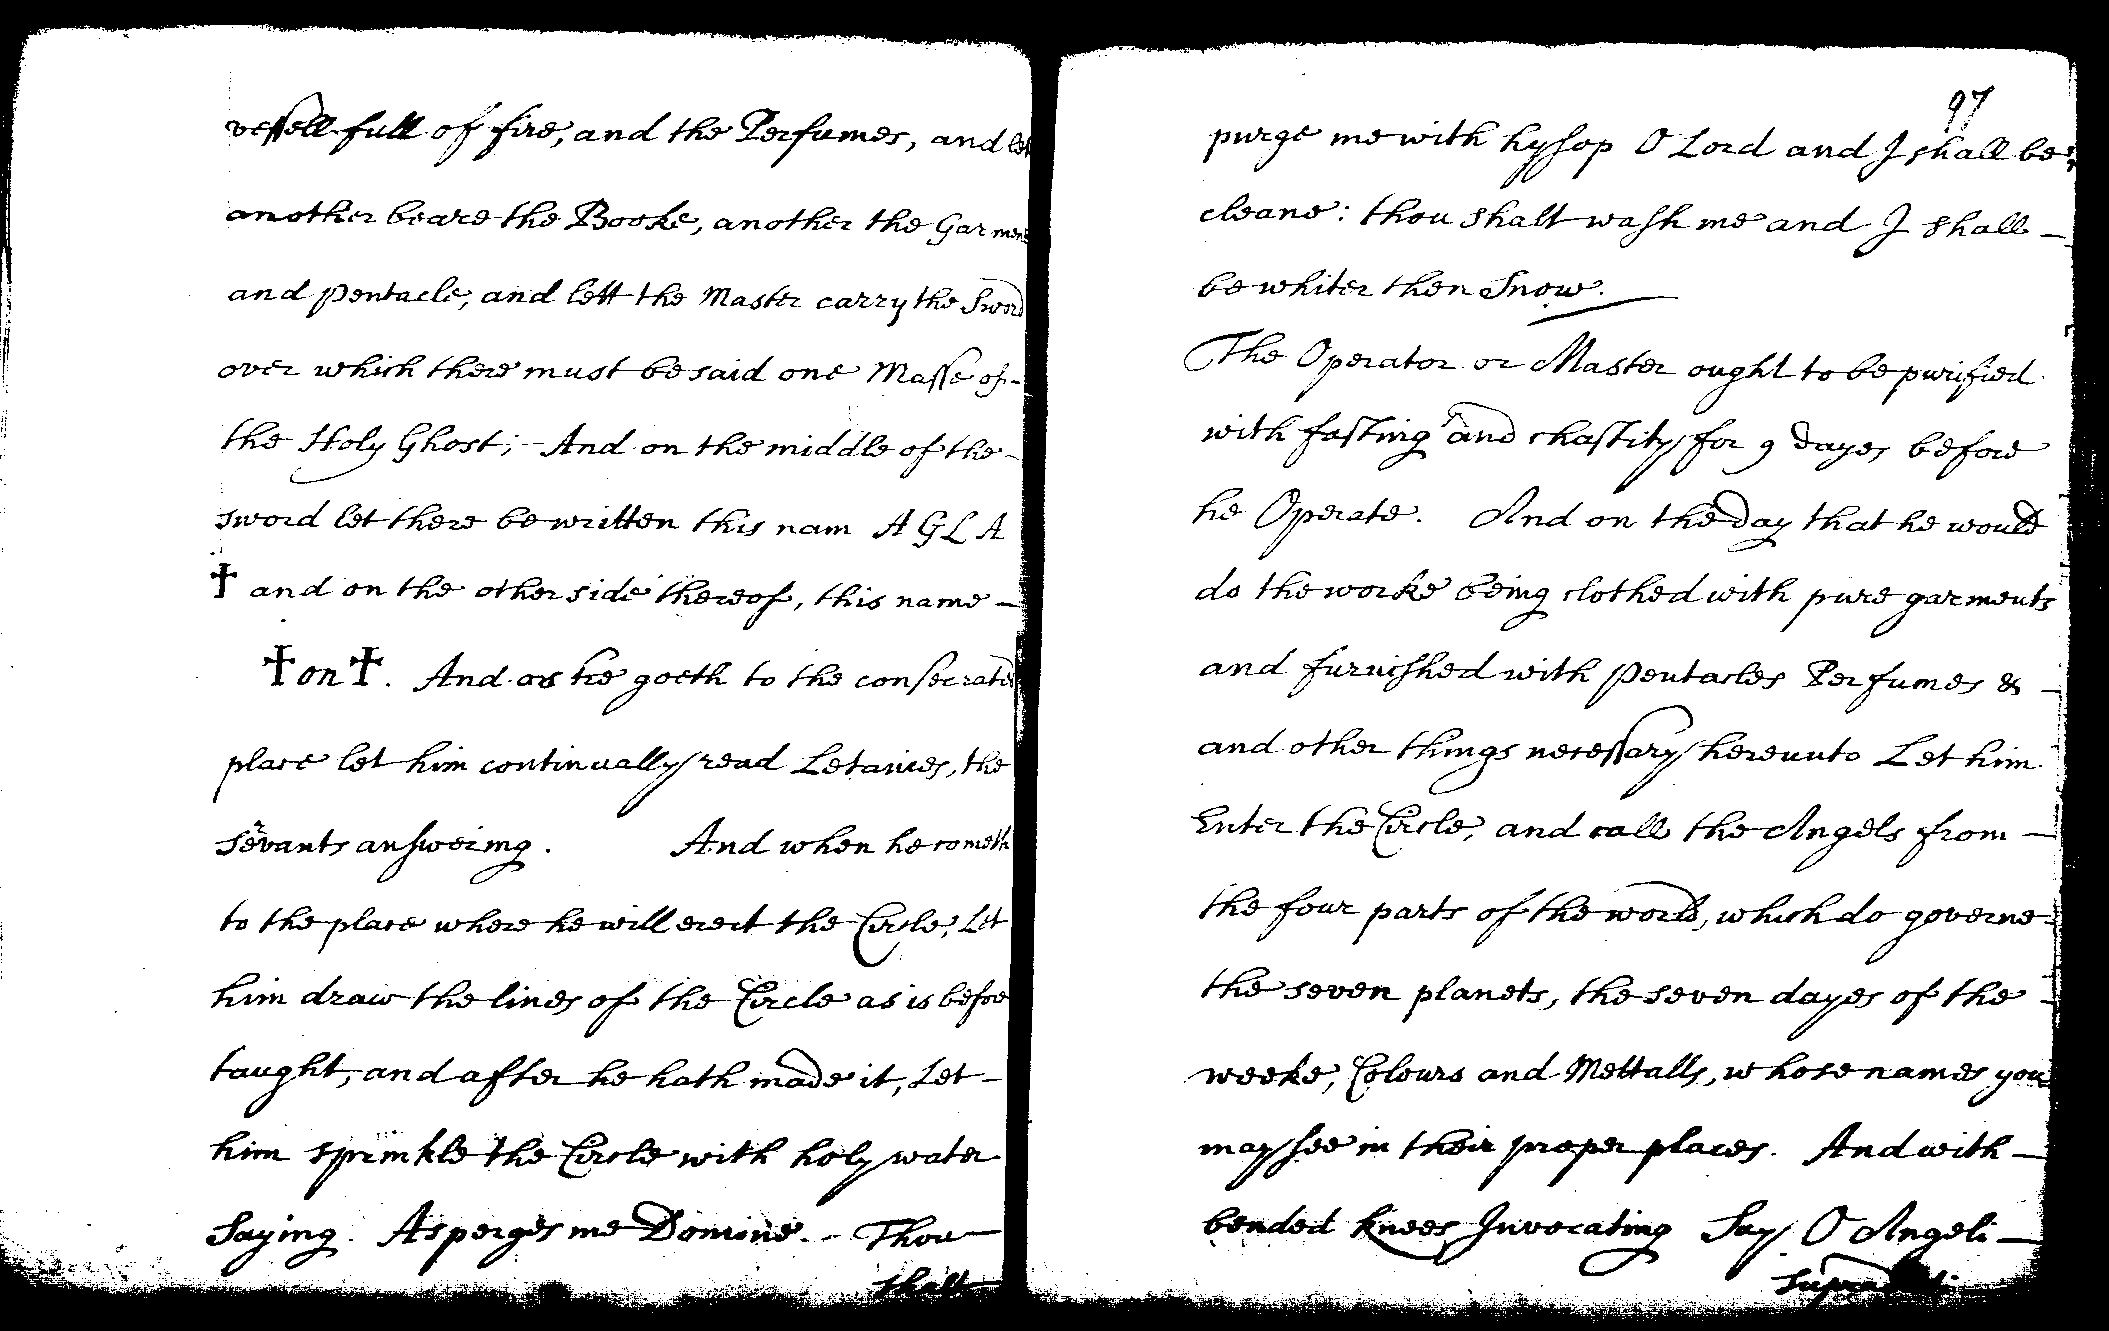 vessell full of fire, and the Perfumes, and let
another beare the Booke, another the Garment
and pentacle, and lett the Master carry the Sword
over which there must be said one Masse of-
the Holy Ghost; - And on the middle of the -
sword let there be written this nam A G L A
✝ and on the other side thereof, this name -
✝ on ✝. And as he goeth to the consecrated
place let him continually read Letanies, the
servants answeing. And when he cometh
to the place where he will erect the Circle, Let
him draw the lines of the Circle as is before
taught, and after he hath made it, Let -
him sprinkle the Circle with holy water
Saying. Asperges me Domine. - Thou
shalt
97
purge me with hysop O Lord and I shall be
cleane: thou shalt wash me and I shall -
be whiter then Snow.
The Operator or Master ought to be purified
with fasting and chastity for 9 dayes before
he Operate. And on the day that he would
do the worke being clothed with pure garments
and furnished with pentacles Perfumes & -
and other things necessary hereunto Let him
Enter the Circle, and call the Angels from -
the four parts of the world, which do governe
the seven planets, the seven dayes of the -
weeke, Colours and Mettalls, whose names you
may see in their proper places. And with -
bended knees Invocating Say O Angeli -